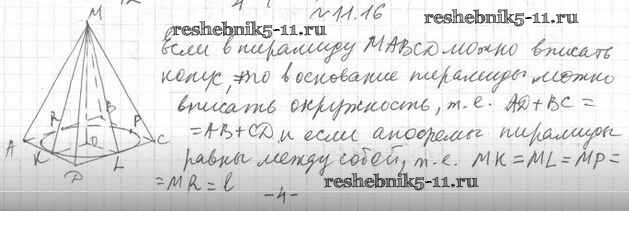 №11.16
reshebnik5-11.ru
reshebnik5-11.ru
M
Если в пирамиду MABCD можно вписать
конус, то в основание пирамиды можно
вписать окружность, т.е. AD+BC=
=AB+CD, и если апофемы пирамиды
равны между собой, т.е. MK=ML=MP=
=MR=l
R B P
A O C
K L
D
-4-
reshebnik5-11.ru